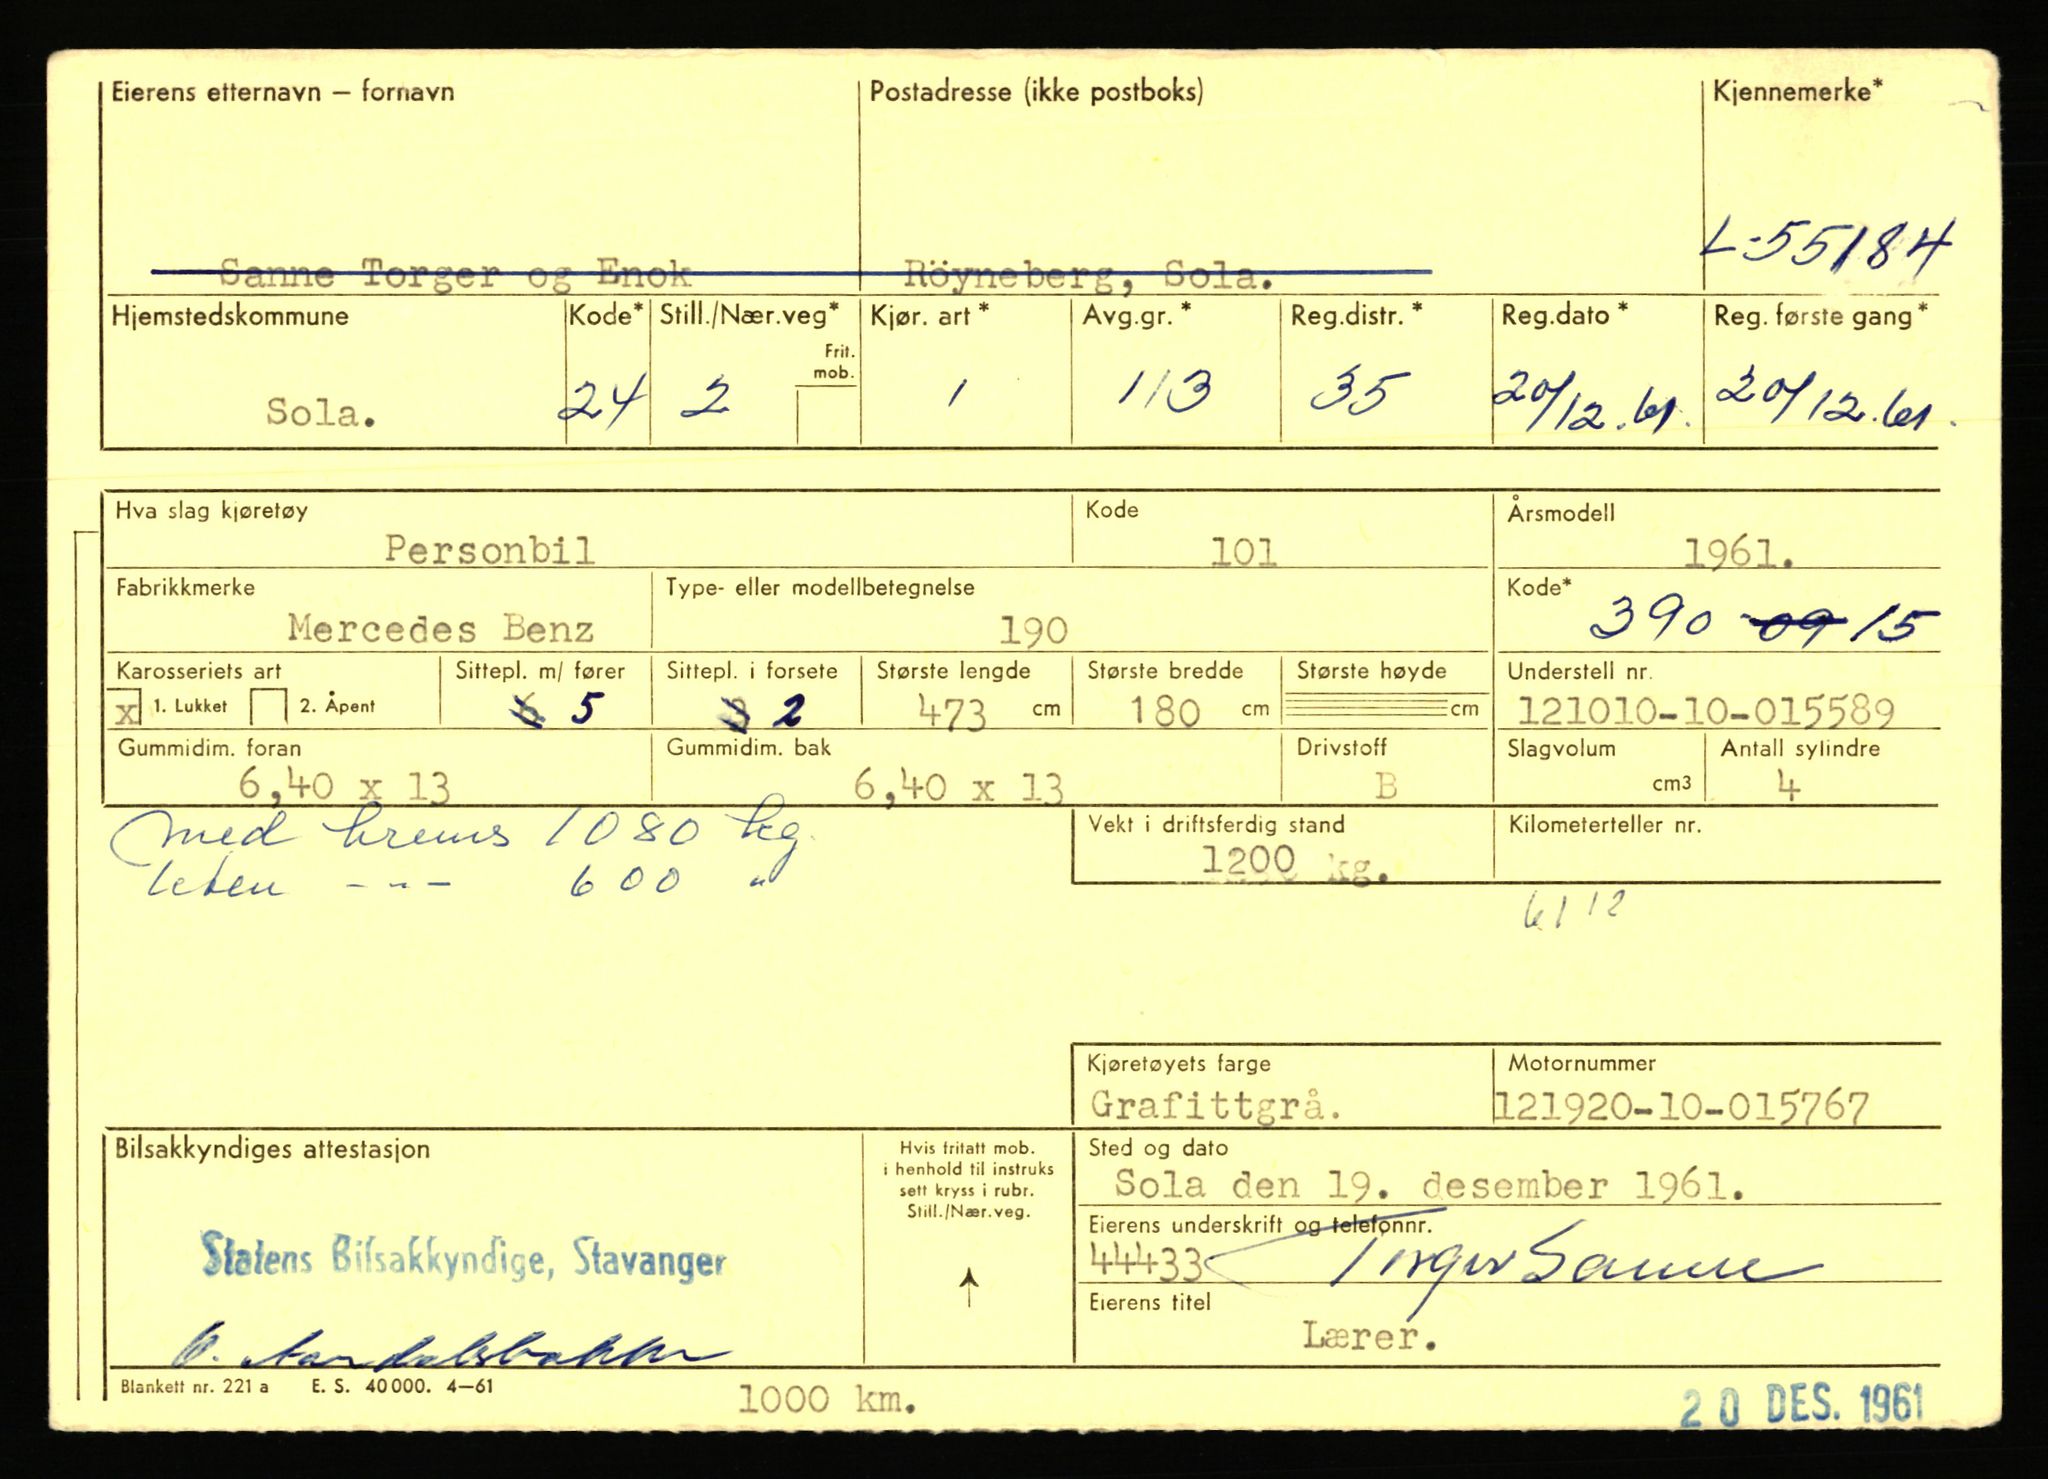 Eierens etternavn – fornavn Postadresse (ikke postboks) Kjennemerke*
L-55184
Sanne Torger og Enok Röyneberg, Sola.
Hjemstedskommune Kode* Still./Nær.veg* Kjør. art* Avg.gr.* Reg.distr.* Reg.dato* Reg. første gang*
Frit.
mob.
Sola. 24 2 1 113 35 20/12.61. 20/12.61.
Hva slag kjøretøy Kode Årsmodell
Personbil 101 1961.
Fabrikkmerke Type- eller modellbetegnelse Kode*
Mercedes Benz 190 390 09 15
Karosseriets art Sittepl. m/ fører Sittepl. i forsete Største lengde Største bredde Største høyde Understell nr.
x 1. Lukket 2. Åpent 6 5 3 2 473 cm 180 cm cm 121010-10-015589
Gummidim. foran Gummidim. bak Drivstoff Slagvolum Antall sylindre
6,40 x 13 6,40 x 13 B cm3 4
med brems 1080 kg. Vekt i driftsferdig stand Kilometerteller nr.
uten -"- 600 " 1200 kg.
61 12
Kjøretøyets farge Motornummer
Grafittgrå. 121920-10-015767
Bilsakkyndiges attestasjon Hvis fritatt mob. Sted og dato
i henhold til instruks
sett kryss i rubr. Sola den 19. desember 1961.
Still./Nær.veg.
Eierens underskrift og telefonnr.
Statens Bilsakkyndige, Stavanger 44433 Torger Sanne
Eierens titel
Lærer.
Blankett nr. 221 a E. S. 40000. 4–61 1000 km. 20 DES. 1961